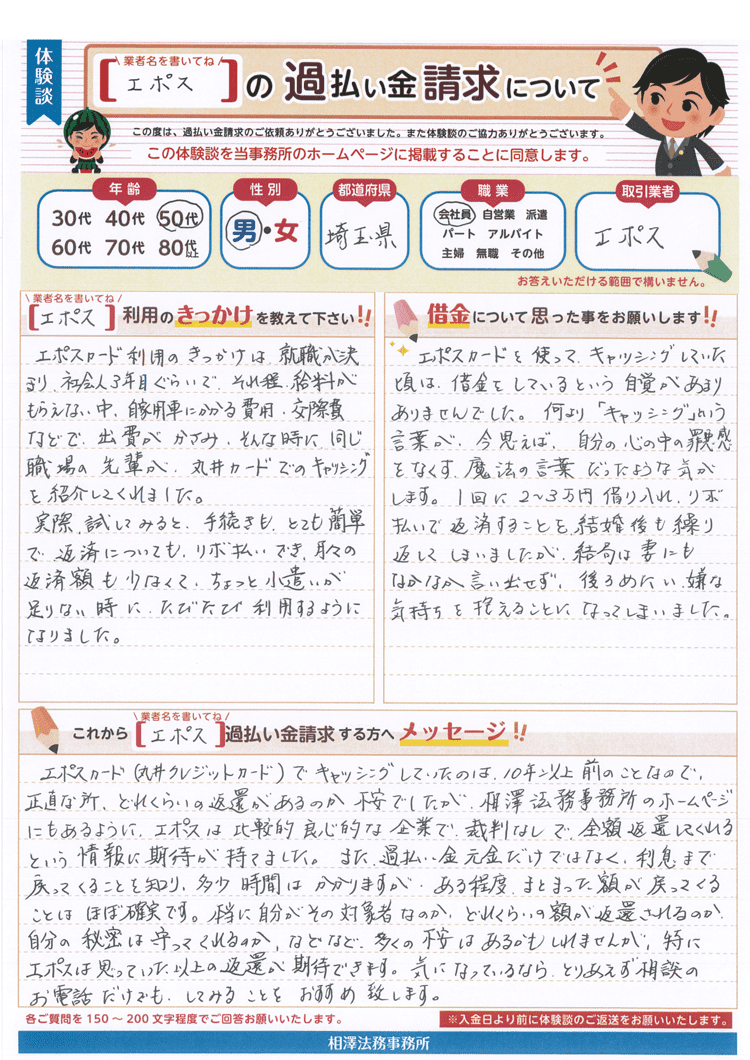 体験談
\ 業者名を書いてね /
[エポス]の 過払い金請求について
この度は、過払い金請求のご依頼ありがとうございました。また体験談のご協力ありがとうございます。
この体験談を当事務所のホームページに掲載することに同意します。
年齢
30代 40代 50代
60代 70代 80代以上
性別
男・女
都道府県
埼玉県
職業
会社員 自営業 派遣
パート アルバイト
主婦 無職 その他
取引業者
エポス
お答えいただける範囲で構いません。
\ 業者名を書いてね /
[エポス] 利用のきっかけを教えて下さい!!
エポスカード利用のきっかけは、就職が決
まり、社会人3年目ぐらいで、それ程、給料が
もらえない中、自家用車にかかる費用、交際費
などで、出費がかさみ、そんな時に、同じ
職場の先輩が、丸井カードでのキャッシング
を紹介してくれました。
実際、試してみると、手続きも、とても簡単
で、返済についても、リボ払いでき、月々の
返済額も少なくて、ちょっと小遣いが
足りない時に、たびたび利用するように
なりました。
借金について思った事をお願いします!!
エポスカードを使って、キャッシングしていた
頃は、借金をしているという自覚があまり
ありませんでした。何より「キャッシング」という
言葉が、今思えば、自分の心の中の罪悪感
をなくす、魔法の言葉だったような気が
します。1回に2〜3万円借り入れ、リボ
払いで返済することを、結婚後も繰り
返してしまいましたが、結局は妻にも
なかなか言い出せず、後ろめたい、嫌な
気持ちを抱えることになってしまいました。
\ 業者名を書いてね /
これから[エポス]過払い金請求する方へメッセージ!!
エポスカード(丸井クレジットカード)でキャッシングしていたのは、10年以上前のことなので、
正直な所、どれくらいの返還があるのか不安でしたが、相澤法務事務所のホームページ
にもあるように、エポスは比較的良心的な企業で、裁判なしで、全額返還してくれる
という情報に期待が持てました。また、過払い金元金だけではなく、利息まで
戻ってくることを知り、多少時間はかかりますが、ある程度、まとまった額が戻ってくる
ことはほぼ確実です。本当に自分がその対象者なのか、どれくらいの額が返還されるのか、
自分の秘密は守ってくれるのか、などなど、多くの不安はあるかもしれませんが、特に
エポスは思っていた以上の返還が期待できます。気になっているなら、とりあえず相談の
お電話だけでも、してみることをおすすめ致します。
各ご質問を150〜200文字程度でご回答お願いいたします。
※入金日より前に体験談のご返送をお願いいたします。
相澤法務事務所